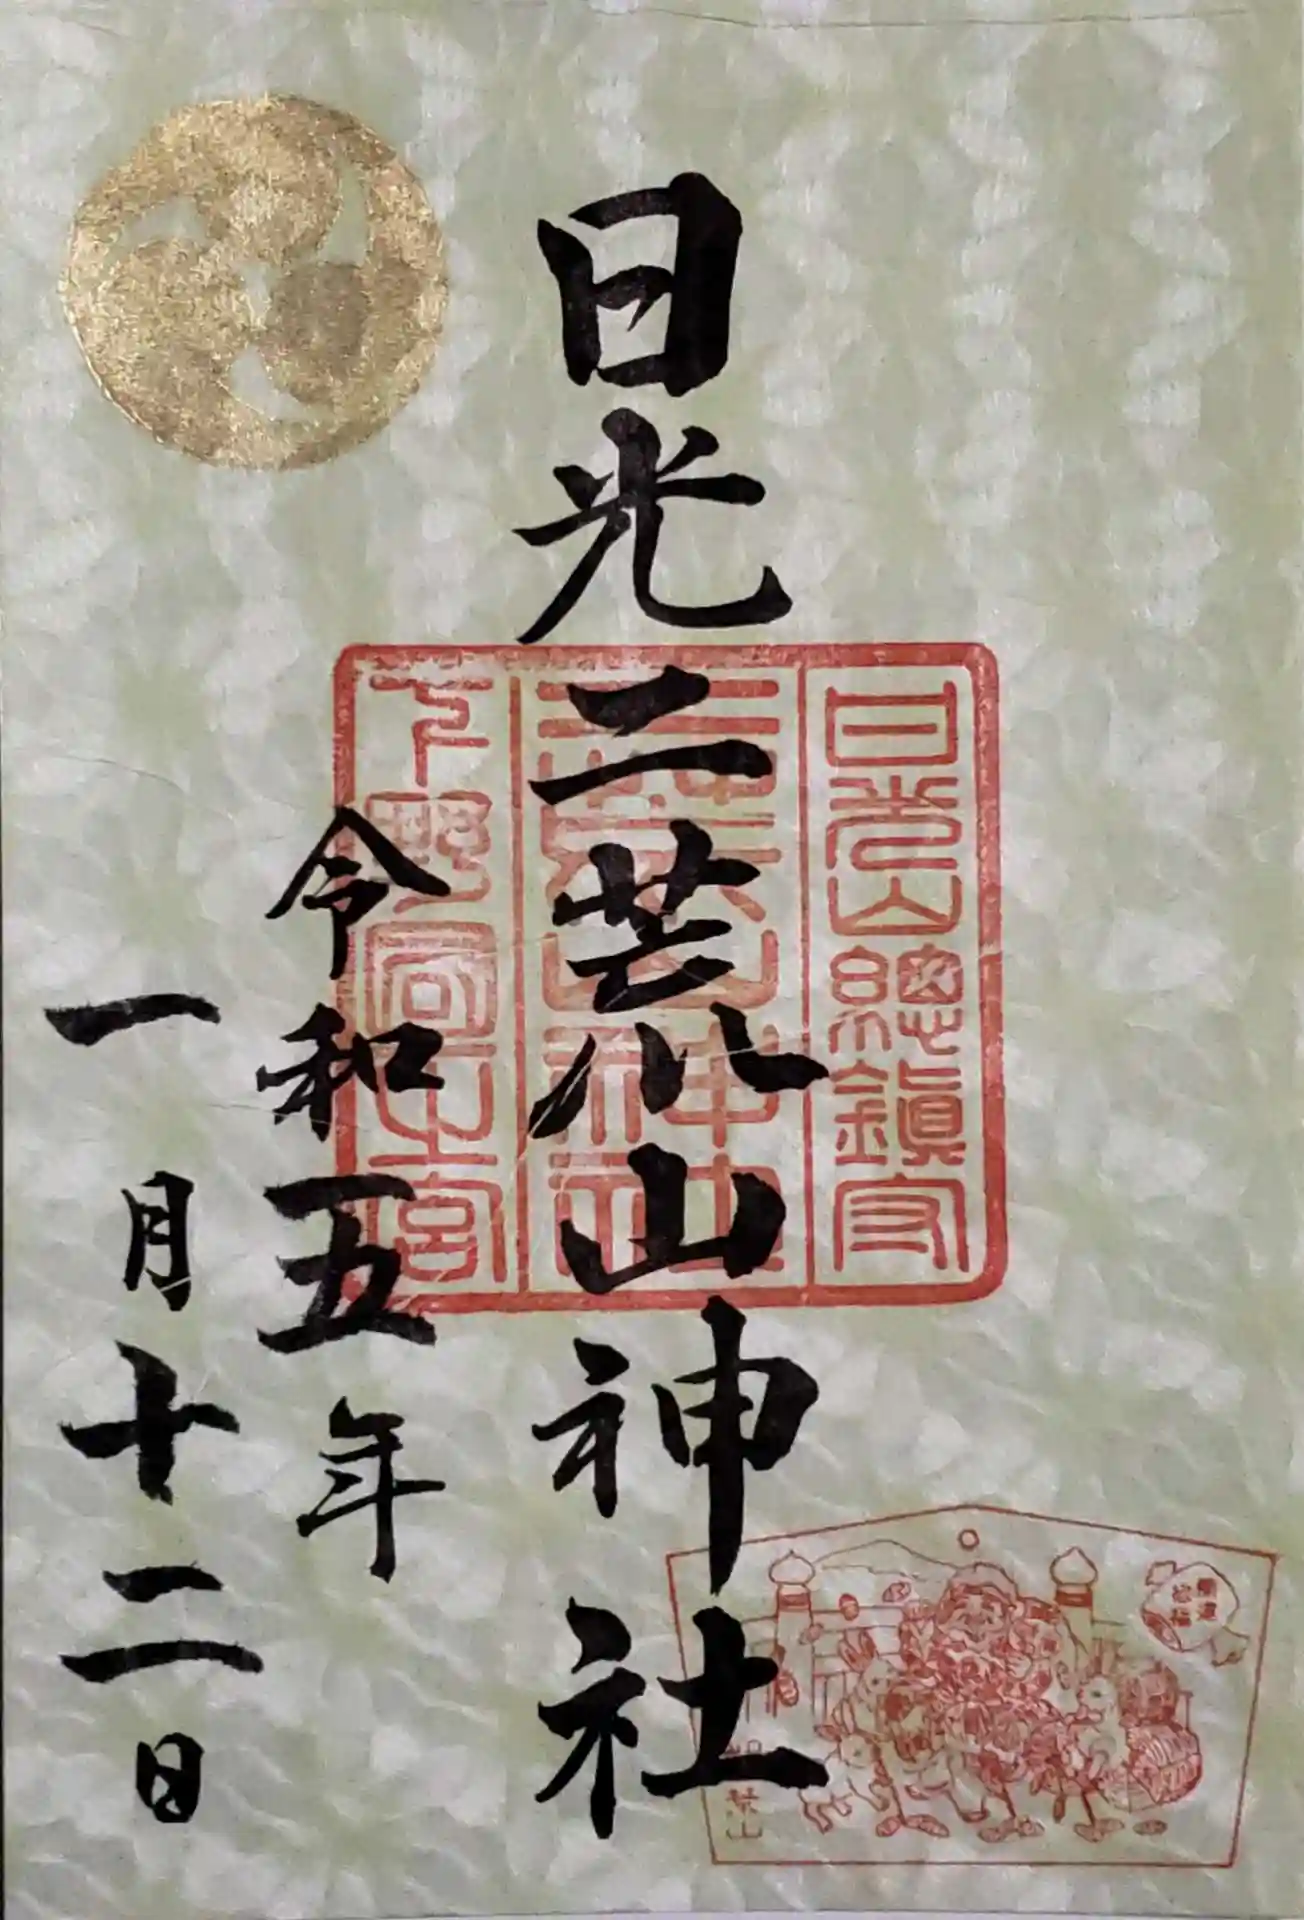 日光二荒山神社
令和五年
一月十二日
日光山總鎮守
二荒山神社
下野國一之宮
開運
招福